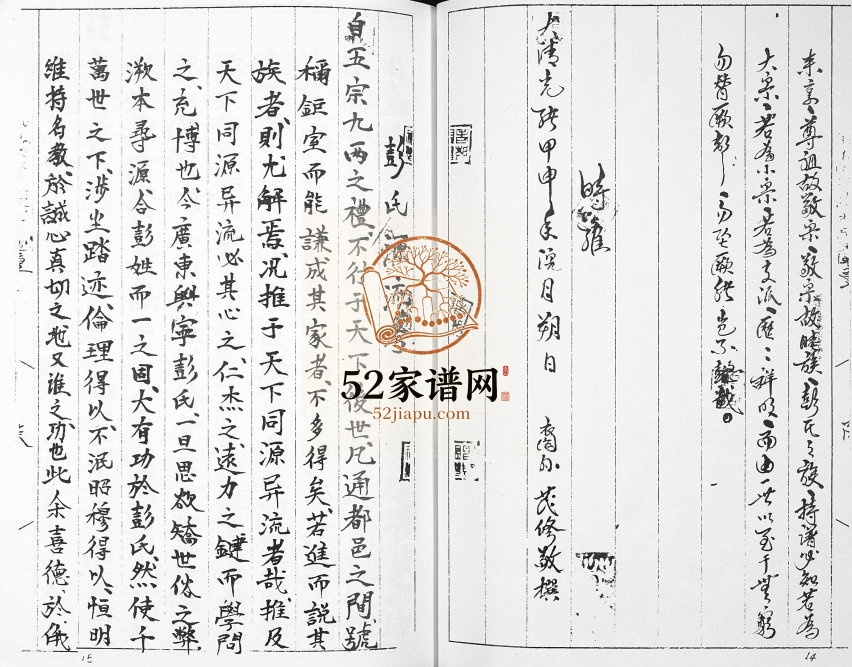 来京、尊祖故敬宗、敬宗故睦族、彭氏之族、持谱必知若为
大宗、若为小宗、若為支派、匯匯詳明、而由一世以至于無窮
勿替厥
時維
大清光緒甲申年 月朔日 裔孙 茂修敬撰
14
彭氏源流
自五宗九两之禮、不行于天下後世、凡通都邑之間、號
稱鉅室而能謙成其家者、不多得矣、若進而説其
族者、則尤解焉、况推于天下同源异流者哉、推及
天下同源异流必其心之仁杰之遠力之鍵而學問
之充博也、今廣東興寧彭氏、一旦思欲矯世俗之弊
溯本尋源、合彭姓而一之固、大有功於彭氏、然使千
萬世之下、渉坐踏迹、倫理得以不泯昭穆得以恒明
維持名教、於誠心真切之地又誰之功也此余喜德於儀
15
52家谱网
52jiapu.com